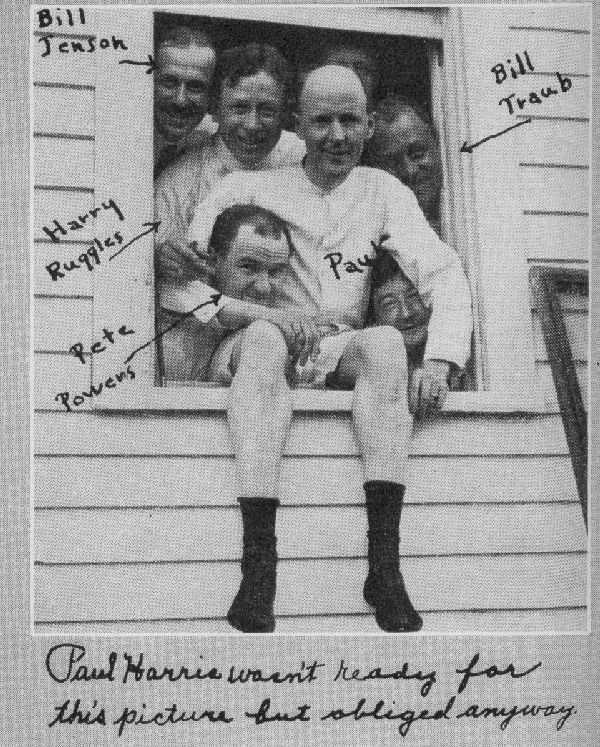 Bill
Jenson
Bill
Traub
Harry
Ruggles
Paul
Pete
Powers
Paul Harris wasn't ready for
this picture but obliged anyway.